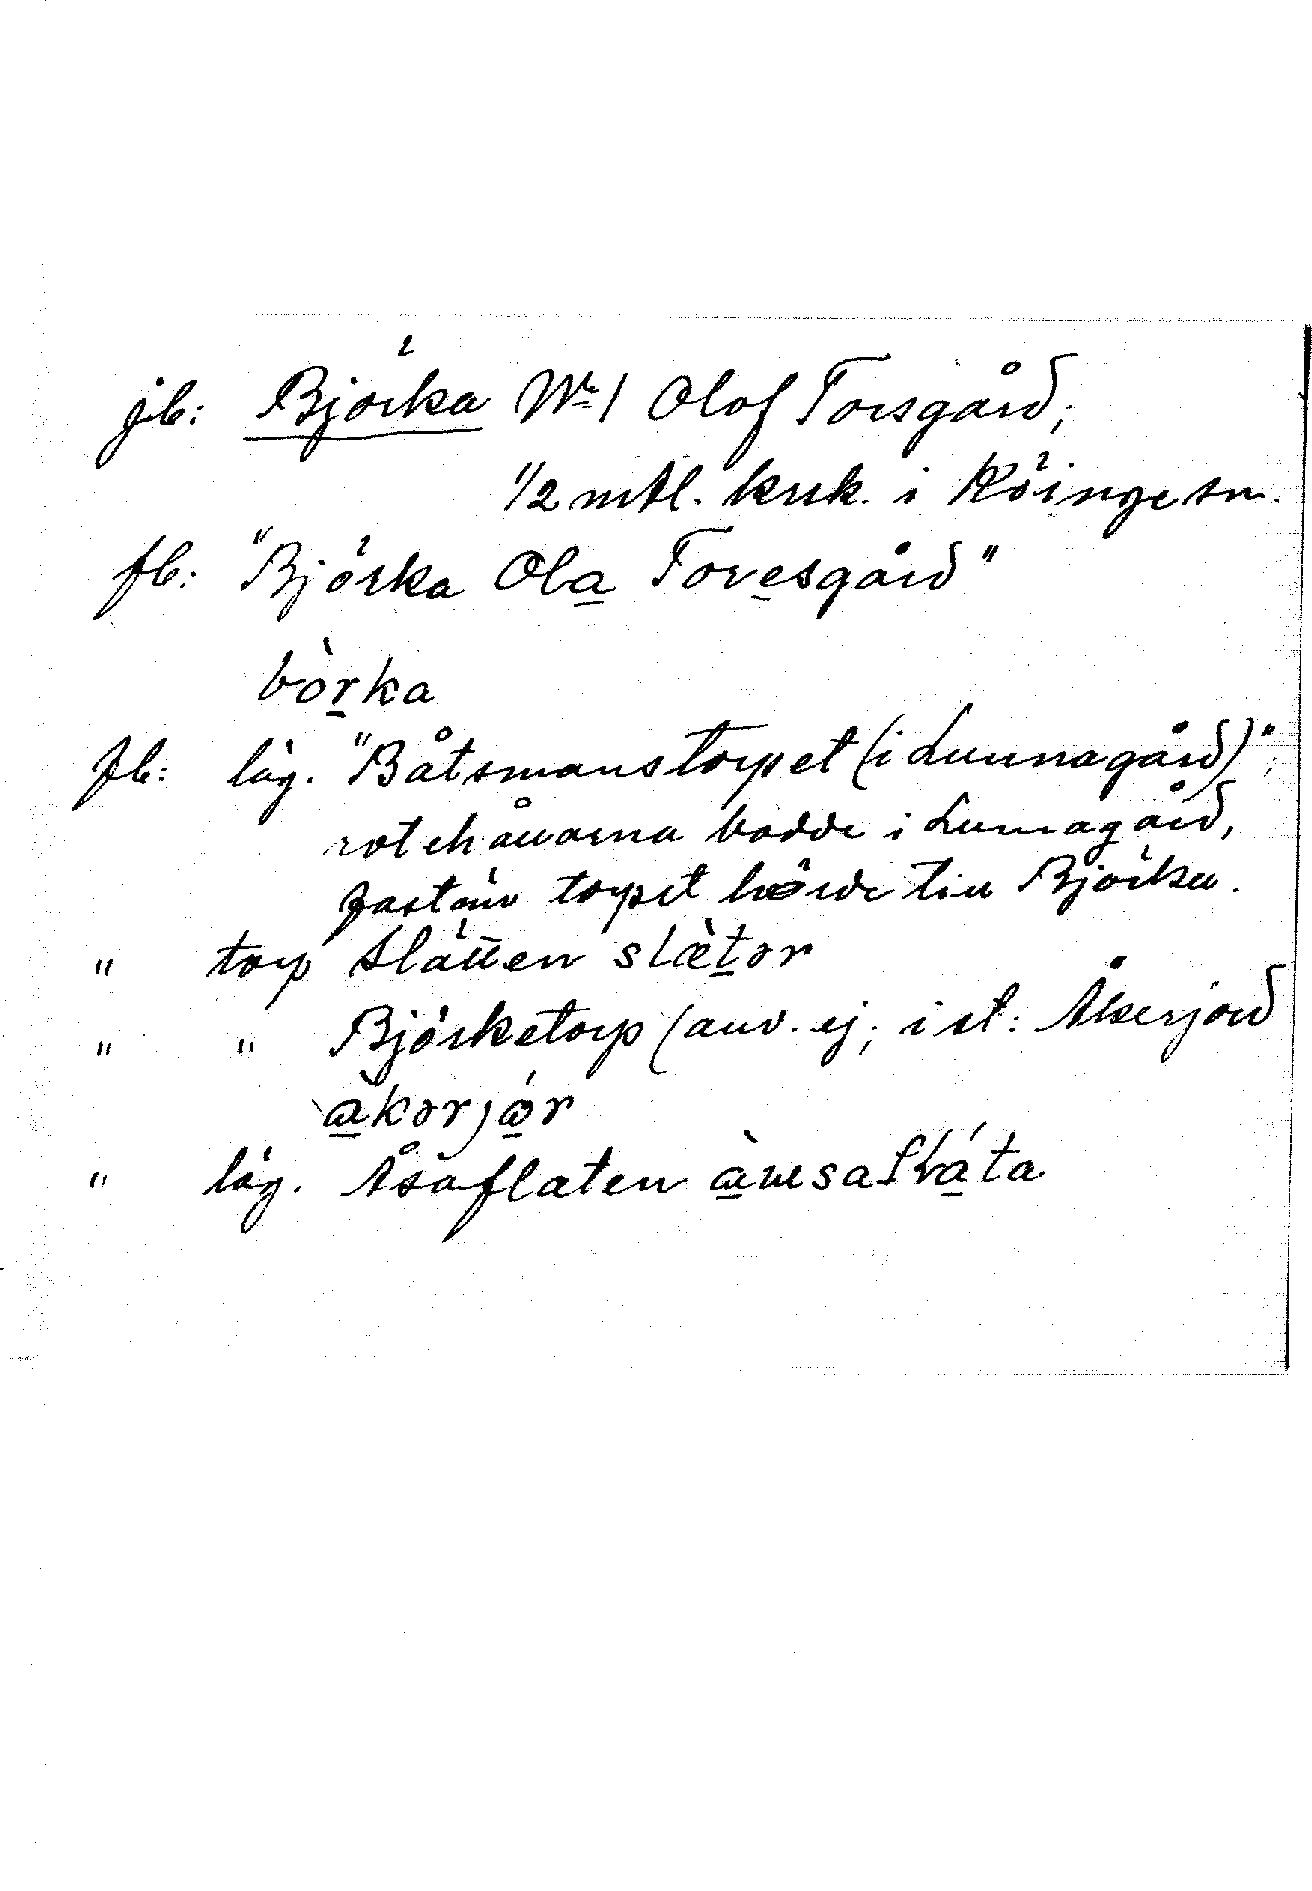 jb: Björka No 1 Olof Torsgård;
1/2 mtl. krsk. i Köinge sn.
fb: "Björka Ola Toresgård"
bòrka
fb: läg. "Båtsmanstorpet (i Lunnagård)";
rotehållarna bodde i Lunnagård,
fastän torpet hörde till Björka.
" torp Slätten slætər
" " Björketorp (anv. ej; i st: Åkerjord
àkərjár
" läg. Åsaflaten